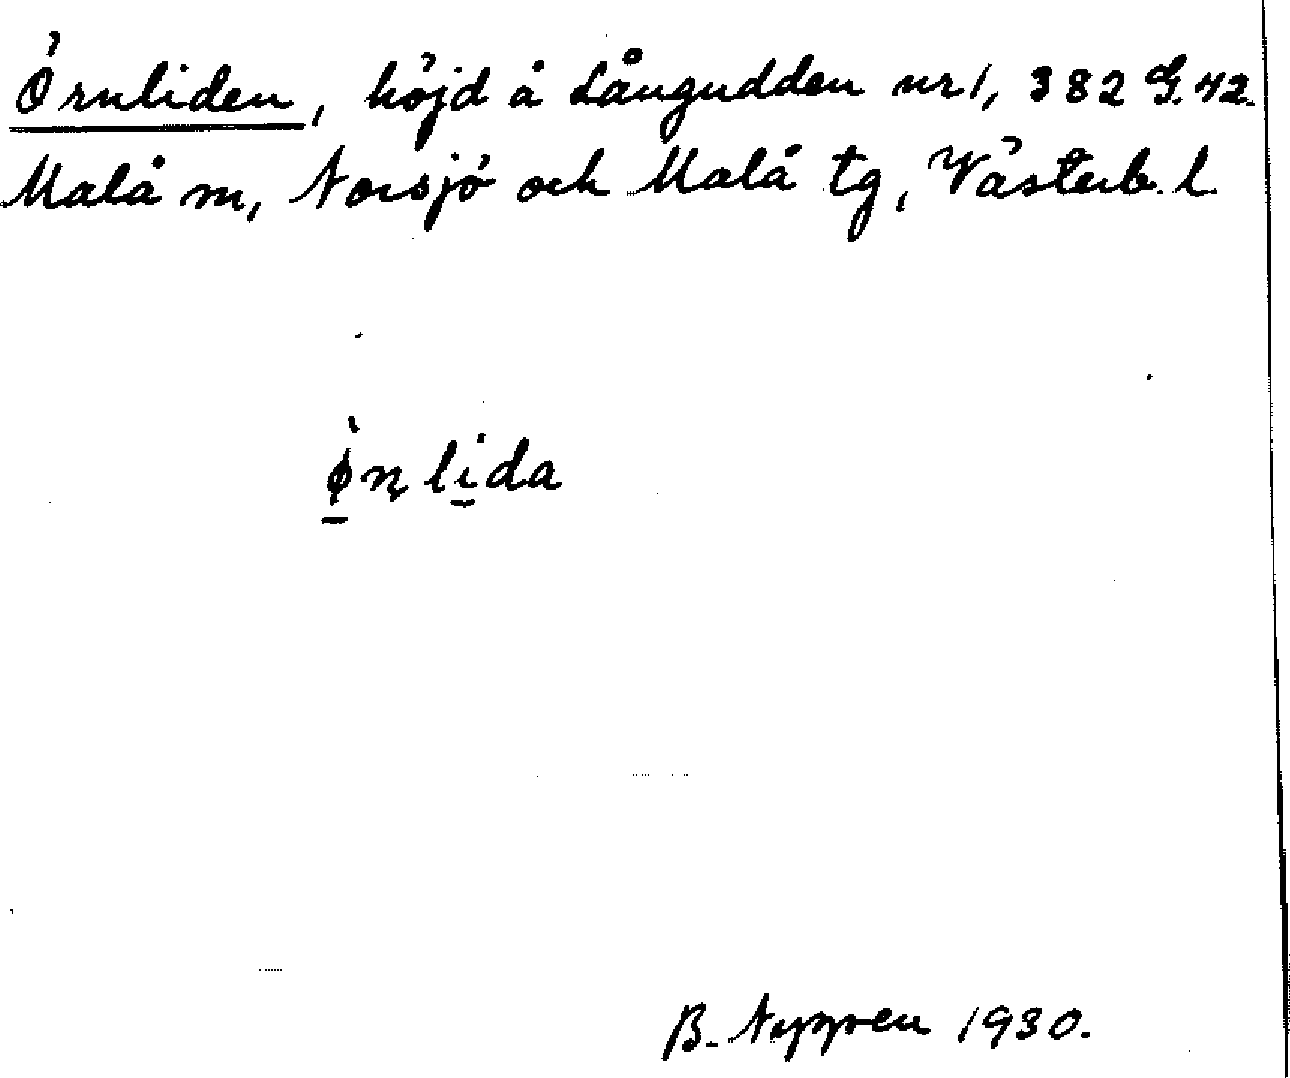 Örnliden, höjd å Långudden nr 1, 382 G. 42.
Malå m, Norsjö och Malå tg, Västerb. l.
ø̱̀ɳ li̱da
B. Nygren 1930.